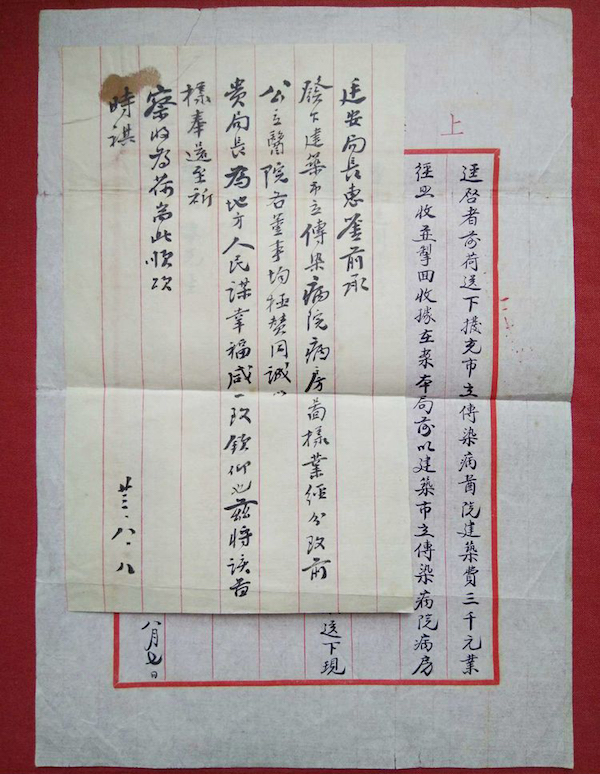 上
逕啓者前荷送下擴充市立傳染病醫院建築費三千元業
經照收並掣回收據在案本局前以建築市立傳染病院病房
送下現
八月七日
廷安局長惠鑒前承
發下建築市立傳染病院病房啚樣業經分致前
公立醫院各董事均極贊同誠以
貴局長為地方人民謀幸福咸一致欽仰也茲將該啚
樣奉還至祈
察收為荷耑此順頌
時祺
廿三、八、八